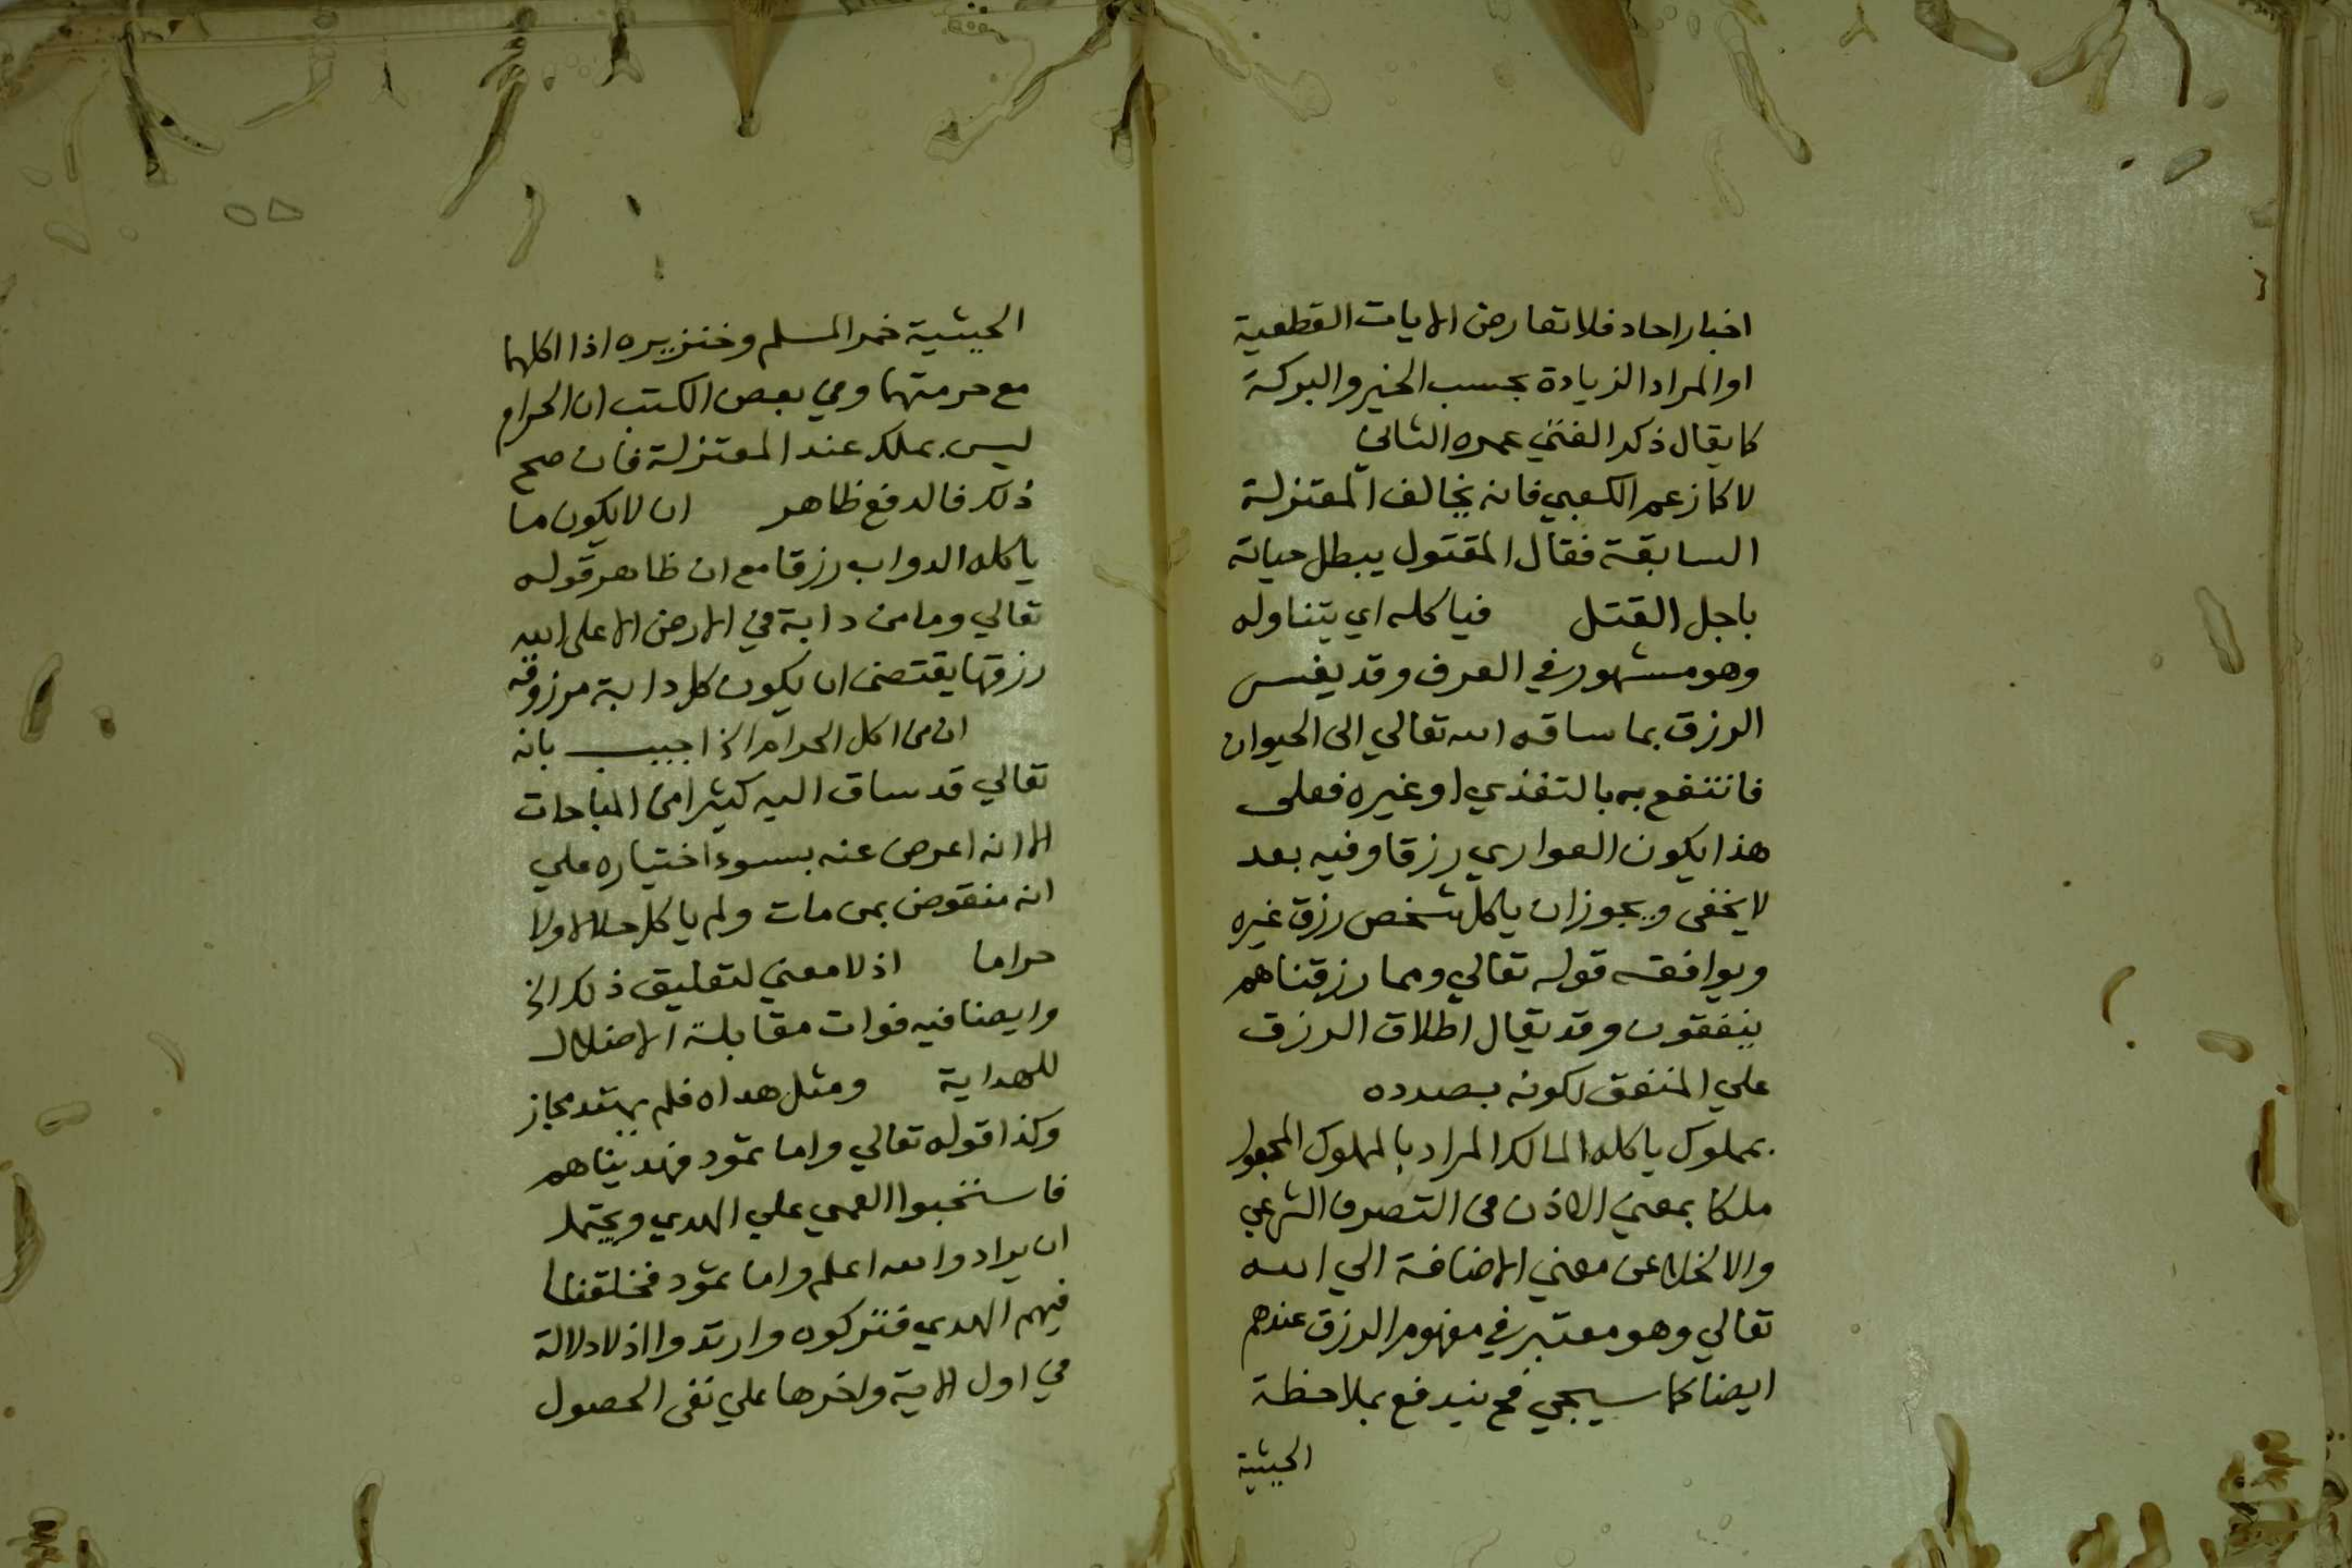 اخبار احاد فلا تعارض الايات القطعية
او المراد الزيادة بحسب الخير والبركة
كما يقال ذكر الفتي عمره الثاني
لا كما زعم الكعبي فانه يخالف المعتزلة
السابقة فقال المقتول يبطل حياته
باجل القتل فياكله اي يتناوله
وهو مشهور في العرف وقد يفسر
الرزق بما ساقه الله تعالي الى الحيوان
فانتفع به بالتغذي او غيره فعلى
هذا يكون العواري رزقا وفيه بعد
لا يخفى ويجوز ان ياكل شخص رزق غيره
ويوافقه قوله تعالي ومما رزقناهم
ينفقون وقد يقال اطلاق الرزق
علي المنفق لكونه بصدده
بمملوك ياكله المالك المراد بالمملوك المجعول
ملكا بمعني الاذن في التصرف الشرعي
والا لخلا عن معني الاضافة الي الله
تعالي وهو معتبر في مفهوم الرزق عندهم
ايضا كما سيجي فح يندفع بملاحظة
الحيثية
٥٥
الحيثية خمر المسلم وخنزيره اذا اكلهما
مع حرمتهما وفي بعض الكتب ان الحرام
ليس بملك عند المعتزلة فان صح
ذلك فالدفع ظاهر ان لا يكون ما
ياكله الدواب رزقا مع ان ظاهر قوله
تعالي وما من دابة في الارض الا على الله
رزقها يقتضى ان يكون كل دابة مرزوقة
ان من اكل الحرام الخ اجيب بانه
تعالي قد ساق اليه كثيرا من المباحات
الا انه اعرض عنه بسوء اختياره علي
انه منقوض بمن مات ولم ياكل حلالا ولا
حراما اذ لا معني لتعليق ذلك الخ
وايضا فيه فوات مقابلة الاضلال
للهداية ومثل هداه فلم يهتد مجاز
وكذا قوله تعالي واما ثمود فهديناهم
فاستحبوا العمي علي الهدي ويحتمل
ان يراد والله اعلم واما ثمود فخلقنا
فيهم الهدي فتركوه وارتدوا اذ لا دلالة
في اول الاية واخرها علي نفى الحصول